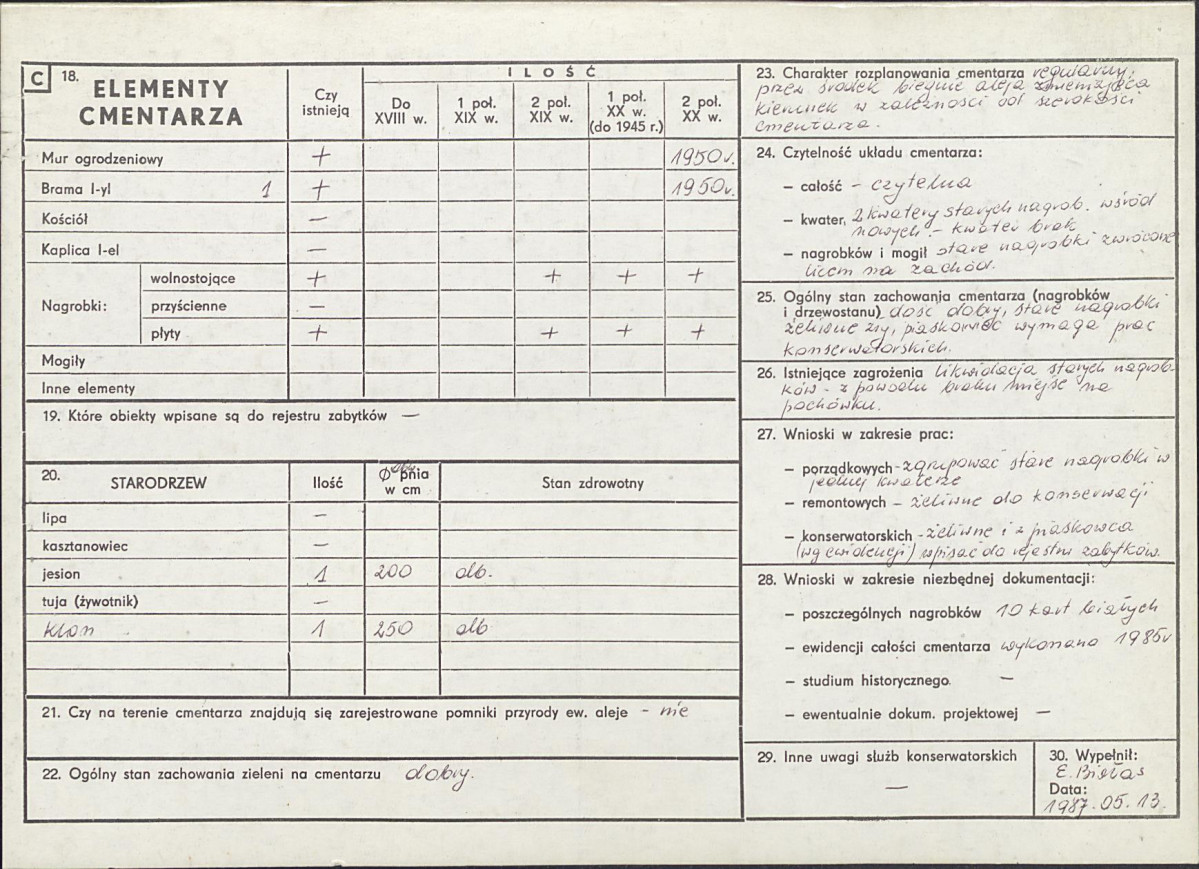 C 18. ELEMENTY CMENTARZA
Czy istnieją
ILOŚĆ
Do XVIII w.
1 poł. XIX w.
2 poł. XIX w.
1 poł. XX w. (do 1945 r.)
2 poł. XX w.
Mur ogrodzeniowy + 1950 r.
Brama I-yl 1 + 1950 r.
Kościół —
Kaplica I-el —
Nagrobki:
wolnostojące + + + +
przyścienne —
płyty + + + +
Mogiły
Inne elementy
19. Które obiekty wpisane są do rejestru zabytków —
20. STARODRZEW Ilość Ø obw pnia w cm Stan zdrowotny
lipa —
kasztanowiec —
jesion 1 200 db.
tuja (żywotnik) —
klon 1 250 db
21. Czy na terenie cmentarza znajdują się zarejestrowane pomniki przyrody ew. aleje - nie
22. Ogólny stan zachowania zieleni na cmentarzu dobry.
23. Charakter rozplanowania cmentarza regularny,
przez środek biegnie aleja zmieniająca
kierunek w zależności od szerokości
cmentarza.
24. Czytelność układu cmentarza:
– całość - czytelna
– kwater, 2 kwatery starych nagrob. wśród
nowych - kwater brak
– nagrobków i mogił stare nagrobki zwrócone
licem na zachód.
25. Ogólny stan zachowania cmentarza (nagrobków
i drzewostanu) dość dobry, stare nagrobki
żeliwne zły, piaskowiec wymaga prac
konserwatorskich.
26. Istniejące zagrożenia likwidacja starych nagrob-
ków - z powodu braku miejsc na
pochówku.
27. Wnioski w zakresie prac:
– porządkowych - zgrupować stare nagrobki w
jednej kwaterze
– remontowych - żeliwne do konserwacji
– konserwatorskich - żeliwne i z piaskowca
(wg ewidencji) wpisać do rejestru zabytków.
28. Wnioski w zakresie niezbędnej dokumentacji:
– poszczególnych nagrobków 10 kart białych
– ewidencji całości cmentarza wykonano 1985r
– studium historycznego. —
– ewentualnie dokum. projektowej —
29. Inne uwagi służb konserwatorskich
—
30. Wypełnił:
E. Bielas
Data:
1987.05.13.